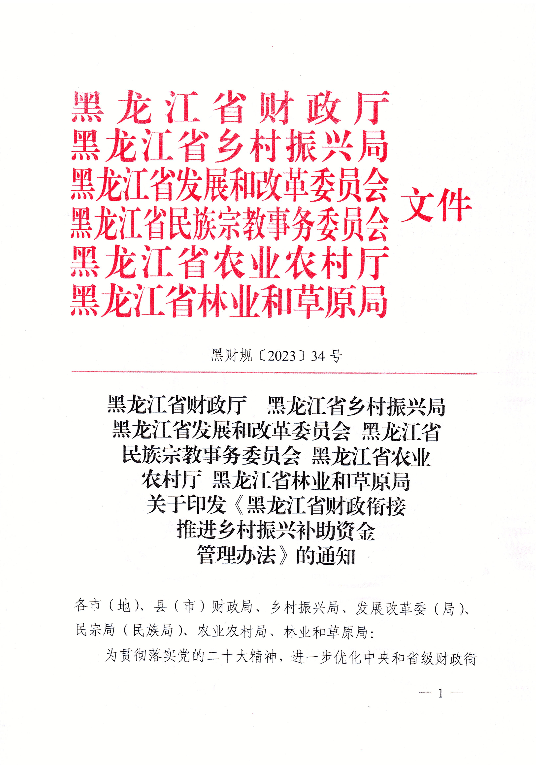 黑龙江省财政厅
黑龙江省乡村振兴局
黑龙江省发展和改革委员会
黑龙江省民族宗教事务委员会
黑龙江省农业农村厅
黑龙江省林业和草原局
文件
黑财规〔2023〕34号
黑龙江省财政厅 黑龙江省乡村振兴局
黑龙江省发展和改革委员会 黑龙江省
民族宗教事务委员会 黑龙江省农业
农村厅 黑龙江省林业和草原局
关于印发《黑龙江省财政衔接
推进乡村振兴补助资金
管理办法》的通知
各市（地）、县（市）财政局、乡村振兴局、发展改革委（局）、
民宗局（民族局）、农业农村局、林业和草原局：
为贯彻落实党的二十大精神，进一步优化中央和省级财政衔
— 1 —